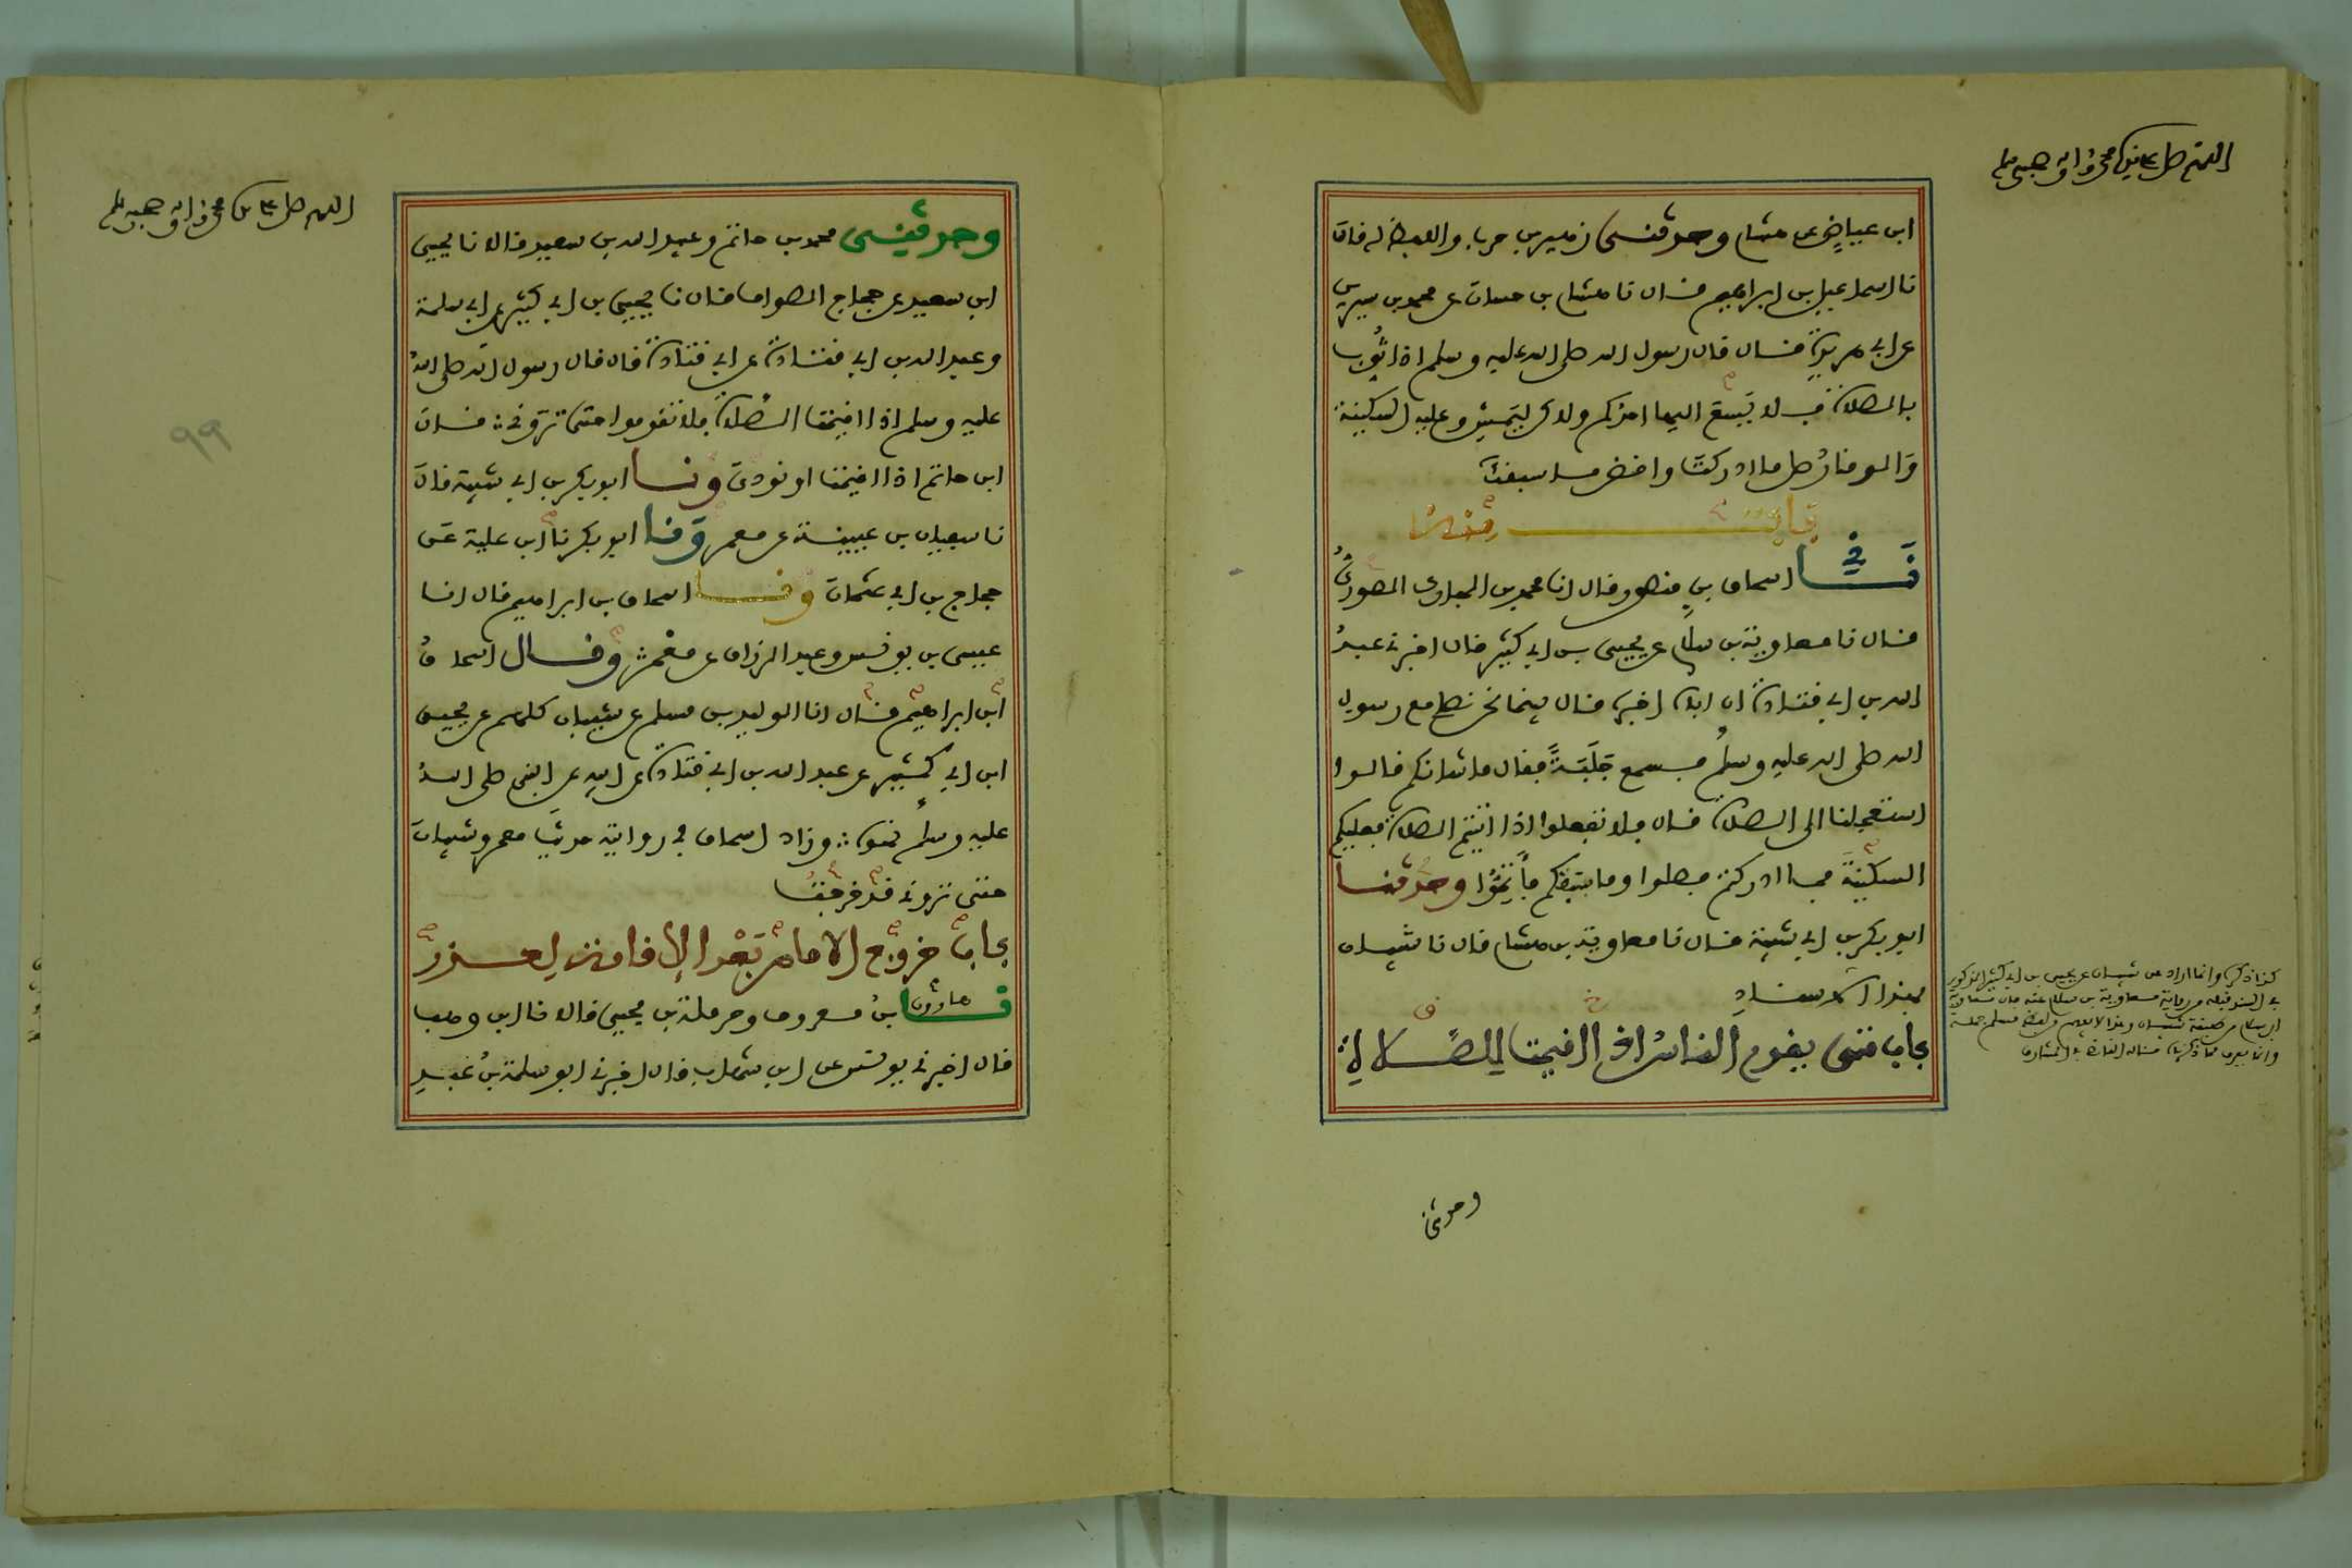 اللهم صل على سيدنا محمد وآله وصحبه وسلم
ابن عياض عن هشام وحدثني زهير بن حرب واللفظ له قال
نا اسماعيل بن ابراهيم قال نا هشام بن حسان عن محمد بن سيرين
عن ابي هريرة قال قال رسول الله صلى الله عليه وسلم اذا ثوب
بالصلاة فلا يسع اليها احدكم ولاكن ليمش وعليه السكينة
والوقار صل ما ادركت واقض ما سبقك
باب منه
نا اسحاق بن منصور قال انا محمد بن المبارك الصوري
قال نا معاوية بن سلام عن يحيى بن ابي كثير قال اخبرني عبد
الله بن ابي قتادة ان اباه اخبره قال بينما نحن نصلي مع رسول
الله صلى الله عليه وسلم فسمع جلبة فقال ما شانكم قالوا
استعجلنا الى الصلاة قال فلا تفعلوا اذا اتيتم الصلاة فعليكم
السكينة فما ادركتم فصلوا وما سبقكم فأتموا وحدثنا
ابو بكر بن ابي شيبة قال نا معاوية بن هشام قال نا شيبان
بهذا الاسناد
باب متى يقوم الناس اذا اقيمت الصلاة
كذا ذكره وانما اراد عن شيبان عن يحيى بن ابي كثير المذكور
في السند قبله من رواية معاوية بن سلام عنه
وحدثني
اللهم صل على سيدنا محمد وآله وصحبه وسلم
وحدثني محمد بن حاتم وعبيد الله بن سعيد قالا نا يحيى
ابن سعيد عن حجاج الصواف قال نا يحيى بن ابي كثير عن ابي سلمة
وعبد الله بن ابي قتادة عن ابي قتادة قال قال رسول الله صلى الله
عليه وسلم اذا اقيمت الصلاة فلا تقوموا حتى تروني وقال
ابن حاتم اذا اقيمت او نودي ونا ابو بكر بن ابي شيبة قال
نا سفيان بن عيينة عن معمر ونا ابو بكر نا ابن علية عن
حجاج بن ابي عثمان ونا اسحاق بن ابراهيم قال انا
عيسى بن يونس وعبد الرزاق عن معمر وقال اسحاق
ابن ابراهيم قال انا الوليد بن مسلم عن شيبان كلهم عن يحيى
ابن ابي كثير عن عبد الله بن ابي قتادة عن ابيه عن النبي صلى الله
عليه وسلم نحوه وزاد اسحاق في روايته حديث معمر وشيبان
حتى تروني قد خرجت
باب خروج الامام بعد الاقامة لعذر
نا هارون بن معروف وحرملة بن يحيى قالا نا ابن وهب
قال اخبرني يونس عن ابن شهاب قال اخبرني ابو سلمة بن عبد
٩٩